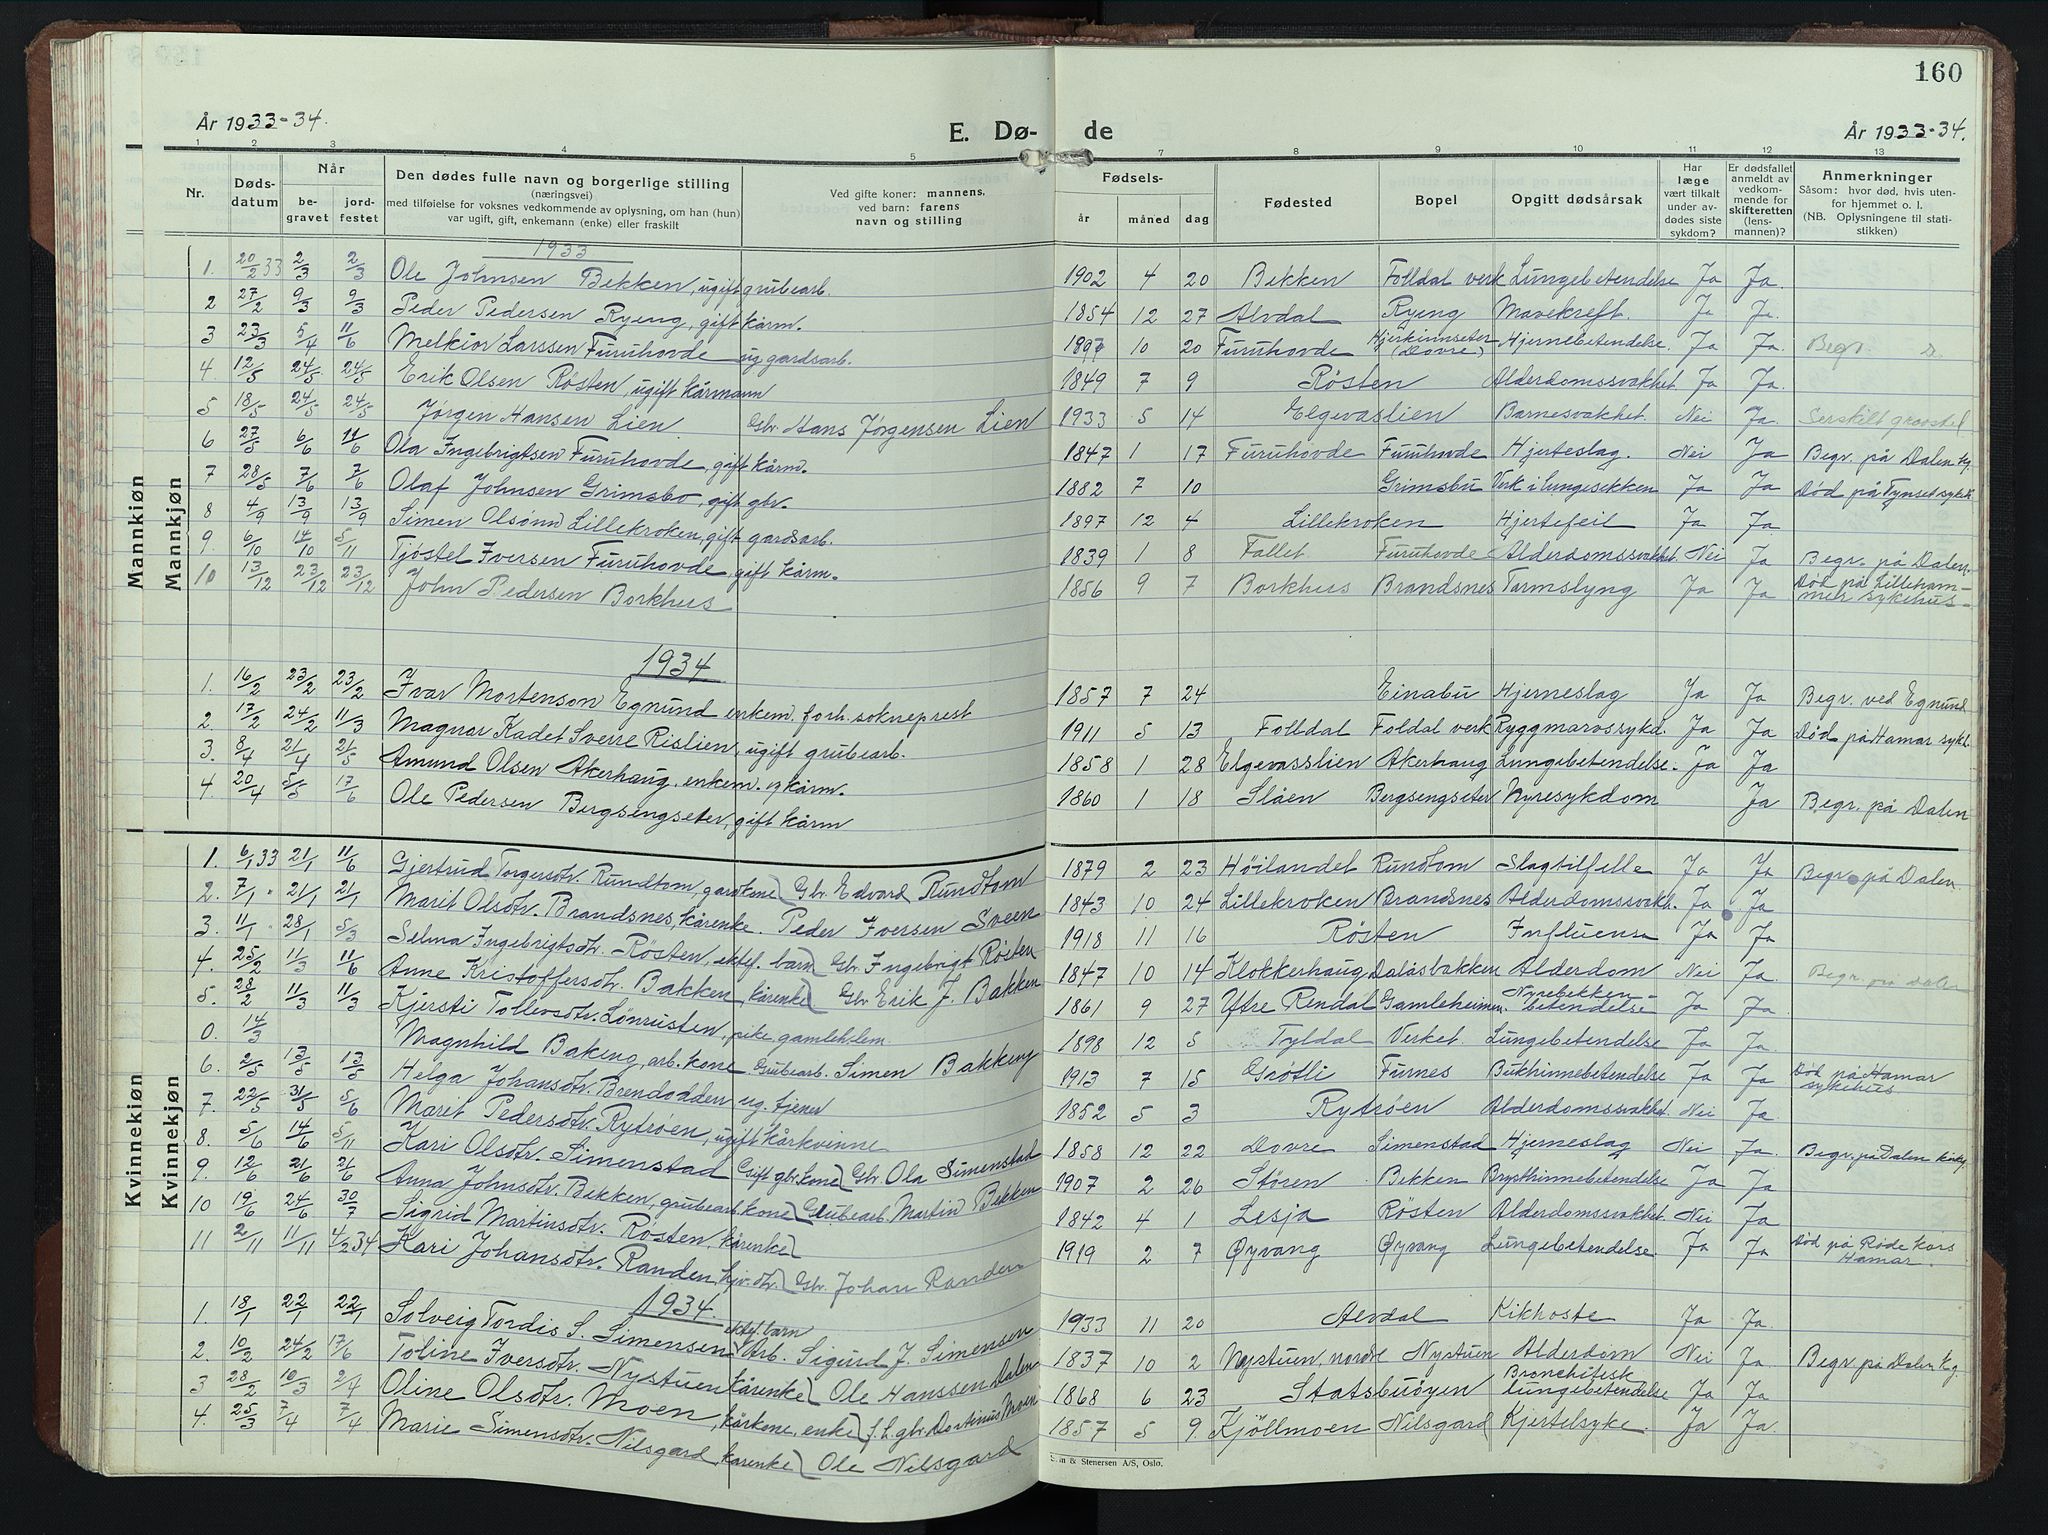 160
År 1933-34.
E. Dø- de
År 1933-34.
1 2 3 4 5 7 8 9 10 11 12 13
Nr. Døds-datum Når be-gravet jord-festet Den dødes fulle navn og borgerlige stilling (næringsvei) med tilføielse for voksnes vedkommende av oplysning, om han (hun) var ugift, gift, enkemann (enke) eller fraskilt Ved gifte koner: mannens, ved barn: farens navn og stilling Fødsels- år måned dag Fødested Bopel Opgitt dødsårsak Har læge vært tilkalt under av-dødes siste sykdom? Er dødsfallet anmeldt av vedkom-mende for skifteretten (lens-mannen)? Anmerkninger Såsom: hvor død, hvis uten-for hjemmet o. l. (NB. Oplysningene til stati-stikken)
Mannkjøn
Mannkjøn
1933
1. 20/2 33 2/3 2/3 Ole Johnsen Bekken, ugift grubearb. 1902 4 20 Bekken Folldal verk Lungebetendelse Ja Ja.
2 27/2 9/3 9/3 Peder Pedersen Ryeng, gift kårm. 1854 12 27 Alvdal Ryeng Mavekreft. Ja Ja.
3 23/3 5/4 11/6 Melkior Larssen Furuhovde ug gardsarb. 10 20 Furuhovde Hjerkinnseter (Dovre) Hjernebetendelse. Ja Ja. Begr.
4. 12/5 24/5 24/5 Erik Olsen Røsten, ugift kårmann 1849 7 9 Røsten Alderdomssvakhet Ja Ja.
5 18/5 24/5 24/5 Jørgen Hansen Lien Gbr. Hans Jørgensen Lien 1933 5 14 Elgevaslien Barnesvakhet Nei Ja. Serskilt
6 27/5 6/6 11/6 Ola Ingebrigtsen Furuhovde, gift kårm. 1847 1 17 Furuhovde Furuhovde Hjerteslag. Nei Ja Begr. på Dalen kg.
7 28/5 7/6 7/6 Olaf Johnsen Grimsbo, gift gbr. 1882 7 10 Grimsbu Verk i lungesekken Ja Ja Død på Tynset sykeh.
8 4/9 13/9 13/9 Simen Olsønn Lillekroken, gift gardsarb. 1897 12 4 Lillekroken Hjertefeil Ja Ja.
9. 6/10 14/10 5/11 Tjøstel Iversen Furuhovde, gift kårm. 1839 1 8 Fallet Furuhovde Alderdomssvakhet Nei Ja Begr. på Dalen.
10 13/12 23/12 23/12 John Pedersen Borkhus 1856 9 7 Borkhus Brandsnes Tarmslyng Ja Ja Død på Lilleham-mer sykehus.
1934
1. 16/2 23/2 23/2 Ivar Mortenson Egnund enkem. forh. sokneprest 1857 7 24 Einabu Hjerneslag Ja Ja Begr. ved Egnund
2. 17/2 24/2 11/3 Magnar Kadet Sverre Rislien, ugift grubearb. 1911 5 13 Folldal Foldal verk Ryggmarvssykd. Ja Ja Død på Hamar sykh.
3. 8/4 21/4 21/5 Amund Olsen Akerhaug, enkem. og kårm. 1858 1 28 Elgevasslien Akerhaug Lungebetendelse. Ja Ja
4. 20/4 5/5 17/6 Ole Pedersen Bergsengseter, gift kårm 1860 1 18 Slåen Bergsengseter Nyresykdom Ja Begr. på Dalen
Kvinnekjøn
Kvinnekjøn
1. 6/1 33 21/1 11/6 Gjertrud Torgersdtr. Rundtom, gardkone) Gbr. Edvard Rundtom 1879 2 23 Høilandet Rundtom Slagtilfelle Ja Ja Begr. på Dalen.
2. 7/1 " 21/1 21/1 Marit Olsdtr. Brandsnes, kårenke. Peder Iversen Sveen 1843 10 24 Lillekroken Brandsnes Alderdomssvakh. Ja Ja
3. 11/1 " 28/1 5/3 Selma Ingebrigtsdtr. Røsten, ektef. barn) Gbr. Ingebrigt Røsten 1918 11 16 Røsten Influensa Ja Ja
4. 25/2 11/3 11/6 Anne Kristoffersdtr. Bakken kårenke) Gbr Erik J. Bakken 1847 10 14 Klokkerhaug Dalåsbakken Alderdom Nei Ja Begr. på Dalen
5. 28/2 11/3 11/3 Kjersti Tollevsdtr. Lønrusten, pike gamleh.lem. 1861 9 27 Ytre Rendal Gamleheimen. Nyrebekken-betendelse Ja Ja.
0. 14/3 Magnhild Bakeng, arb. kone Grubearb. Simen Bakkeng 1898 12 5 Tyldal Verket. Lungebetendelse Ja Ja.
6. 2/5 13/5 13/5 Helga Johansdtr. Brendodden ug. tjener 1913 7 15 Grøtli Furnes Bukhinnebetendelse Ja Ja Død på Hamar sykehus.
7. 22/5 31/5 5/6 Marit Pedersdtr. Rytrøen, ugift kårkvinne 1852 5 3 Rytrøen Alderdomssvakhet. Nei Ja.
8. 5/6 14/6 5/11 Kari Olsdtr. Simenstad Gift gbr. kone) Gbr. Ola Simenstad 1858 12 22 Dovre Simenstad Hjerneslag Nei Ja. Begr. på Dalen kirkg.
9. 12/6 21/6 21/6 Anna Johnsdtr. Bekken, grubearb. kone) Grubearb. Martin Bekken 1907 2 26 Støren Bekken Brysthinnebetendelse Ja Ja
10 19/6 24/6 30/7 Sigrid Martinsdtr. Røsten, kårenke) 1842 4 1 Lesja Røsten Alderdomssvakhet. Nei Ja
11 2/11 11/11 4/2 34 Kari Johansdtr. Randen, hjv. dtr.) Gbr. Johan Randen 1919 2 7 Øyvang Øyvang Lungebetendelse. Ja Ja Død på Røde Kors Hamar.
1934.
1. 18/1 22/1 22/1 Solveig Tordis S. Simensen ektef. barn Arb. Sigurd J. Simensen 1933 11 20 Alvdal Kikhoste Ja Ja.
2. 10/2 24/2 17/6 Toline Iversdtr. Nystuen kårenke) Ole Hanssen Dalen 1837 10 2 Nystuen, nordre Nystuen Alderdom Nei Ja. Begr. på Dalen kg.
3 28/2 10/3 2/4 Oline Olsdtr. Moen, kårkone, enke) f. h. gbr. Dortinius Moen 1868 6 23 Statsbuøyen Bronchitisk lungebetendelse Ja Ja
4. 25/3 7/4 7/4 Marie Simensdtr. Nilsgard, kårenke) Ole Nilsgard 1857 5 9. Kjøllmoen Nilsgard Kjertelsyke. Ja Ja.
& Stenersen A/S, Oslo.